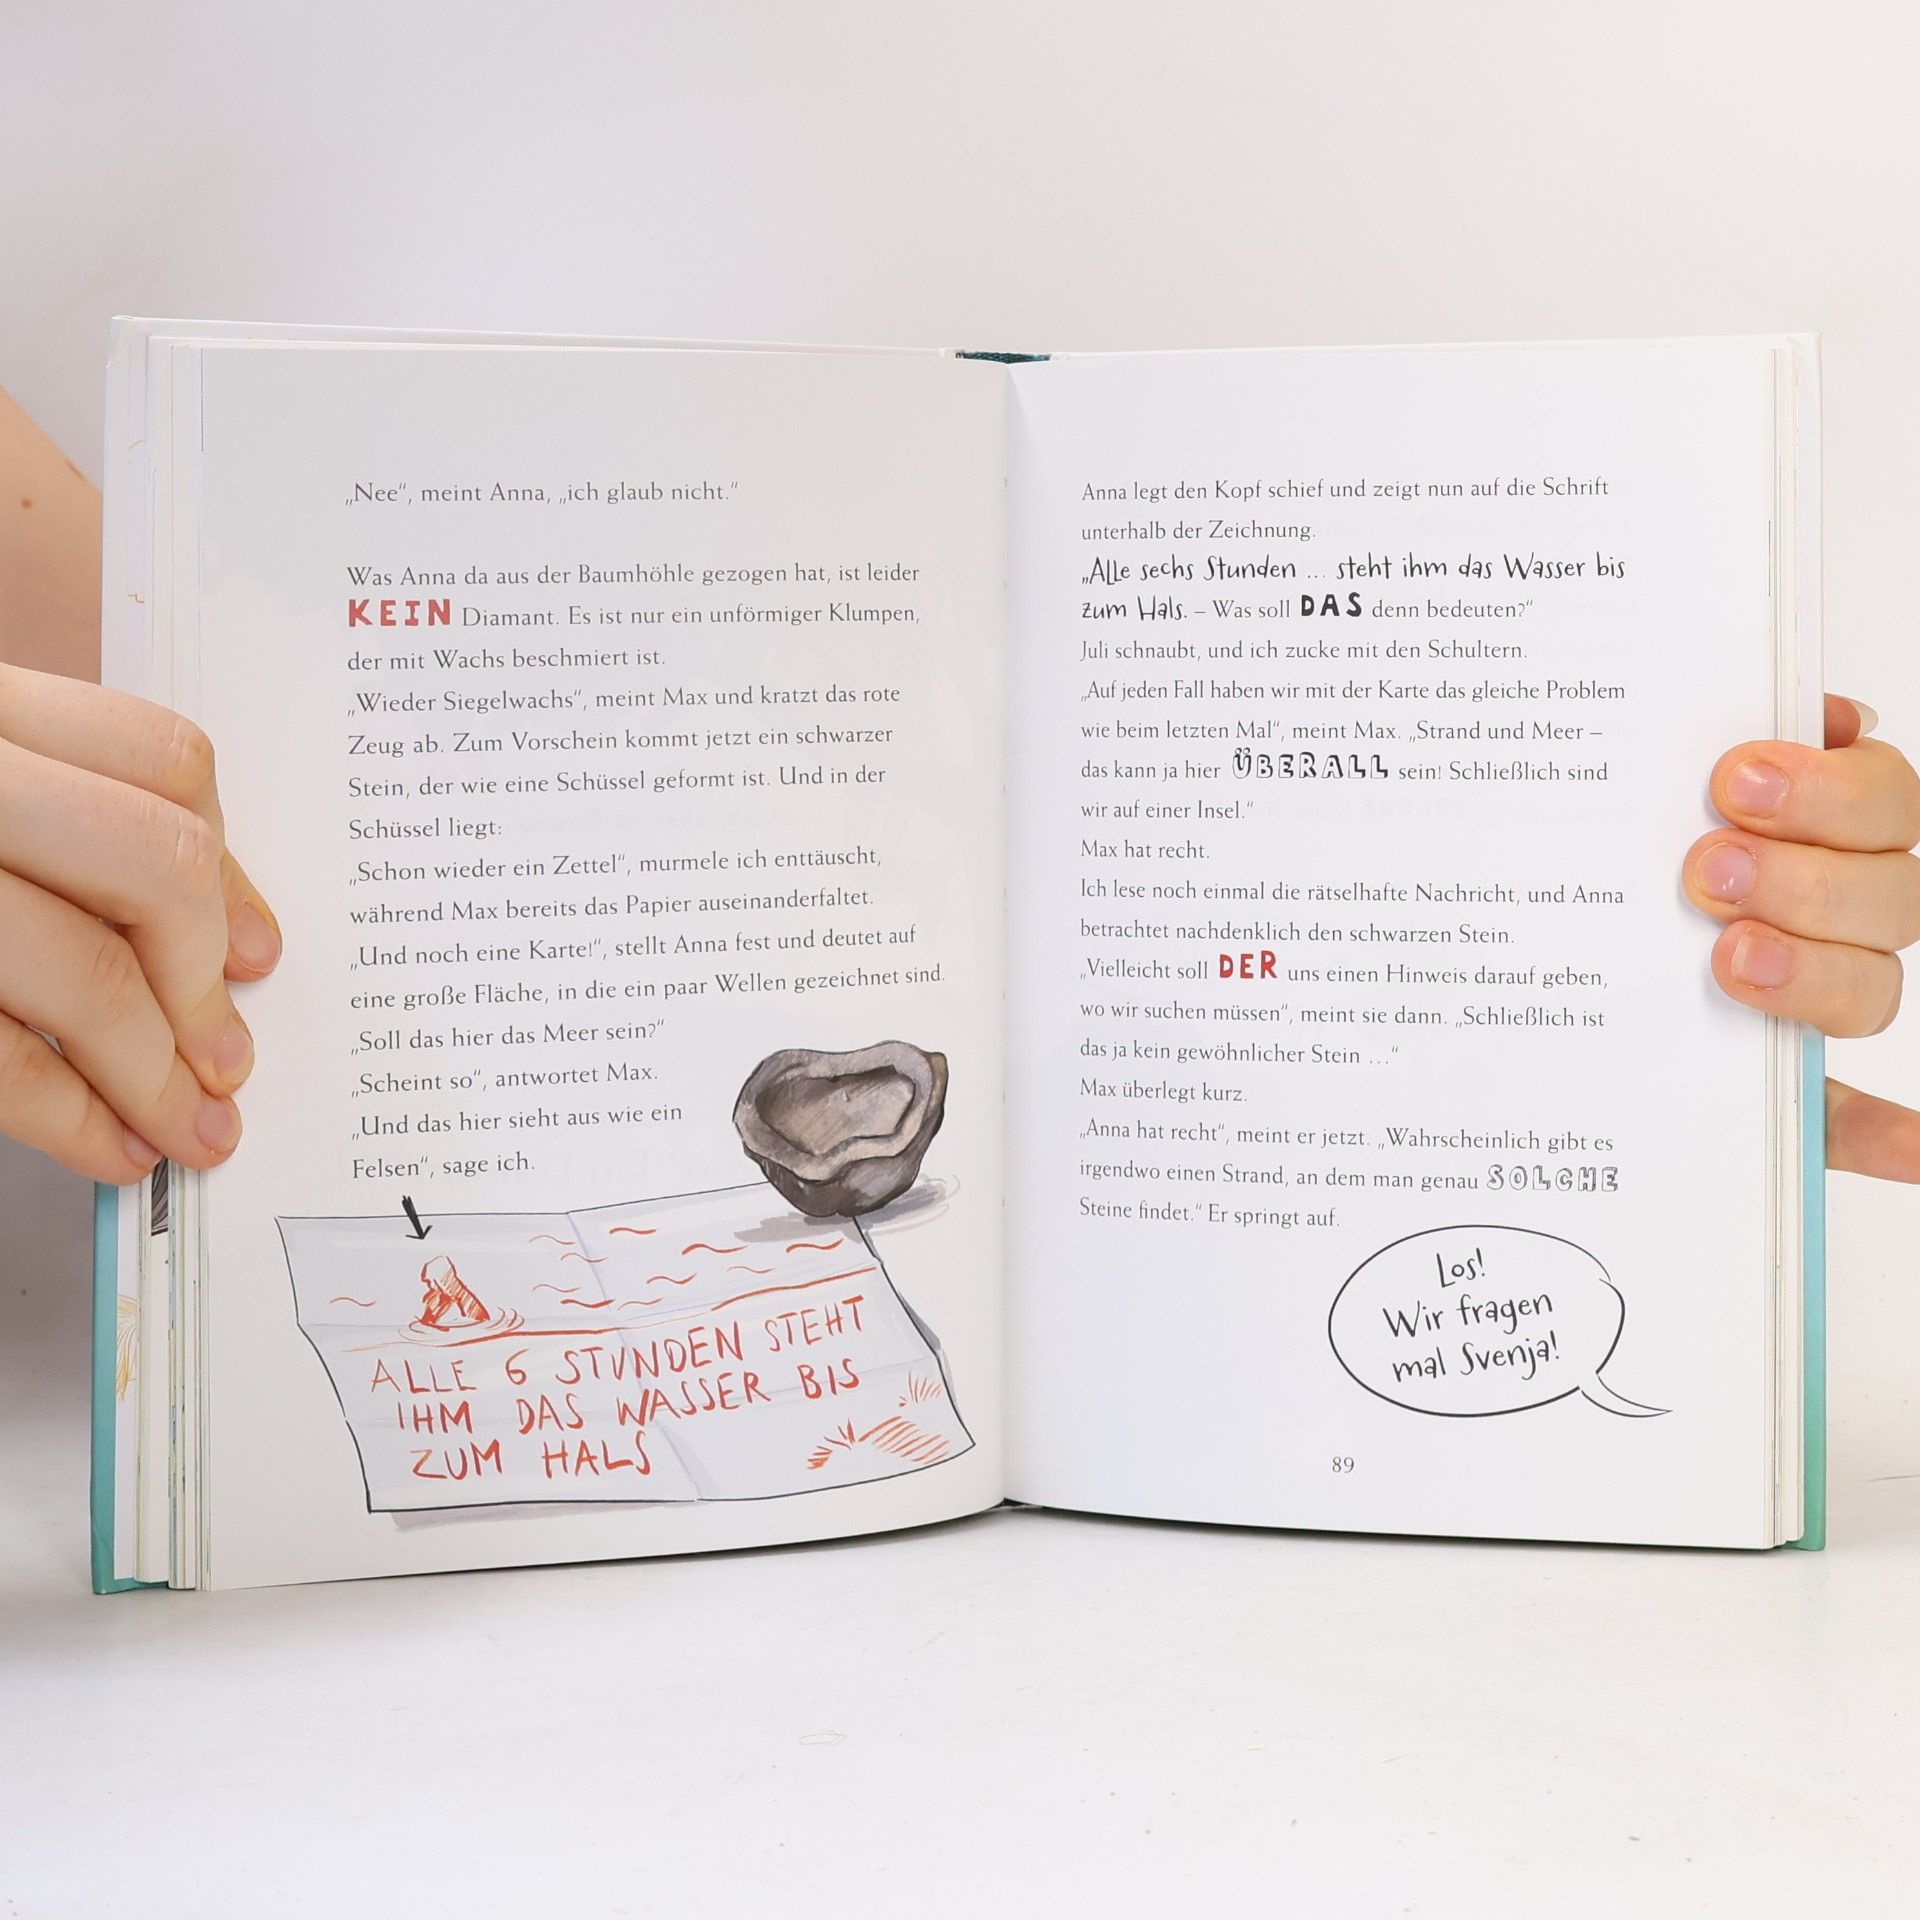 „Nee“, meint Anna, „ich glaub nicht.“
Was Anna da aus der Baumhöhle gezogen hat, ist leider
KEIN Diamant. Es ist nur ein unförmiger Klumpen,
der mit Wachs beschmiert ist.
„Wieder Siegelwachs“, meint Max und kratzt das rote
Zeug ab. Zum Vorschein kommt jetzt ein schwarzer
Stein, der wie eine Schüssel geformt ist. Und in der
Schüssel liegt:
„Schon wieder ein Zettel“, murmele ich enttäuscht,
während Max bereits das Papier auseinanderfaltet.
„Und noch eine Karte!“, stellt Anna fest und deutet auf
eine große Fläche, in die ein paar Wellen gezeichnet sind.
„Soll das hier das Meer sein?“
„Scheint so“, antwortet Max.
„Und das hier sieht aus wie ein
Felsen“, sage ich.
ALLE 6 STUNDEN STEHT
IHM DAS WASSER BIS
ZUM HALS
Anna legt den Kopf schief und zeigt nun auf die Schrift
unterhalb der Zeichnung.
„Alle sechs Stunden ... steht ihm das Wasser bis
zum Hals. – Was soll DAS denn bedeuten?“
Juli schnaubt, und ich zucke mit den Schultern.
„Auf jeden Fall haben wir mit der Karte das gleiche Problem
wie beim letzten Mal“, meint Max. „Strand und Meer –
das kann ja hier ÜBERALL sein! Schließlich sind
wir auf einer Insel.“
Max hat recht.
Ich lese noch einmal die rätselhafte Nachricht, und Anna
betrachtet nachdenklich den schwarzen Stein.
„Vielleicht soll DER uns einen Hinweis darauf geben,
wo wir suchen müssen“, meint sie dann. „Schließlich ist
das ja kein gewöhnlicher Stein ...“
Max überlegt kurz.
„Anna hat recht“, meint er jetzt. „Wahrscheinlich gibt es
irgendwo einen Strand, an dem man genau SOLCHE
Steine findet.“ Er springt auf.
Los!
Wir fragen
mal Svenja!
89